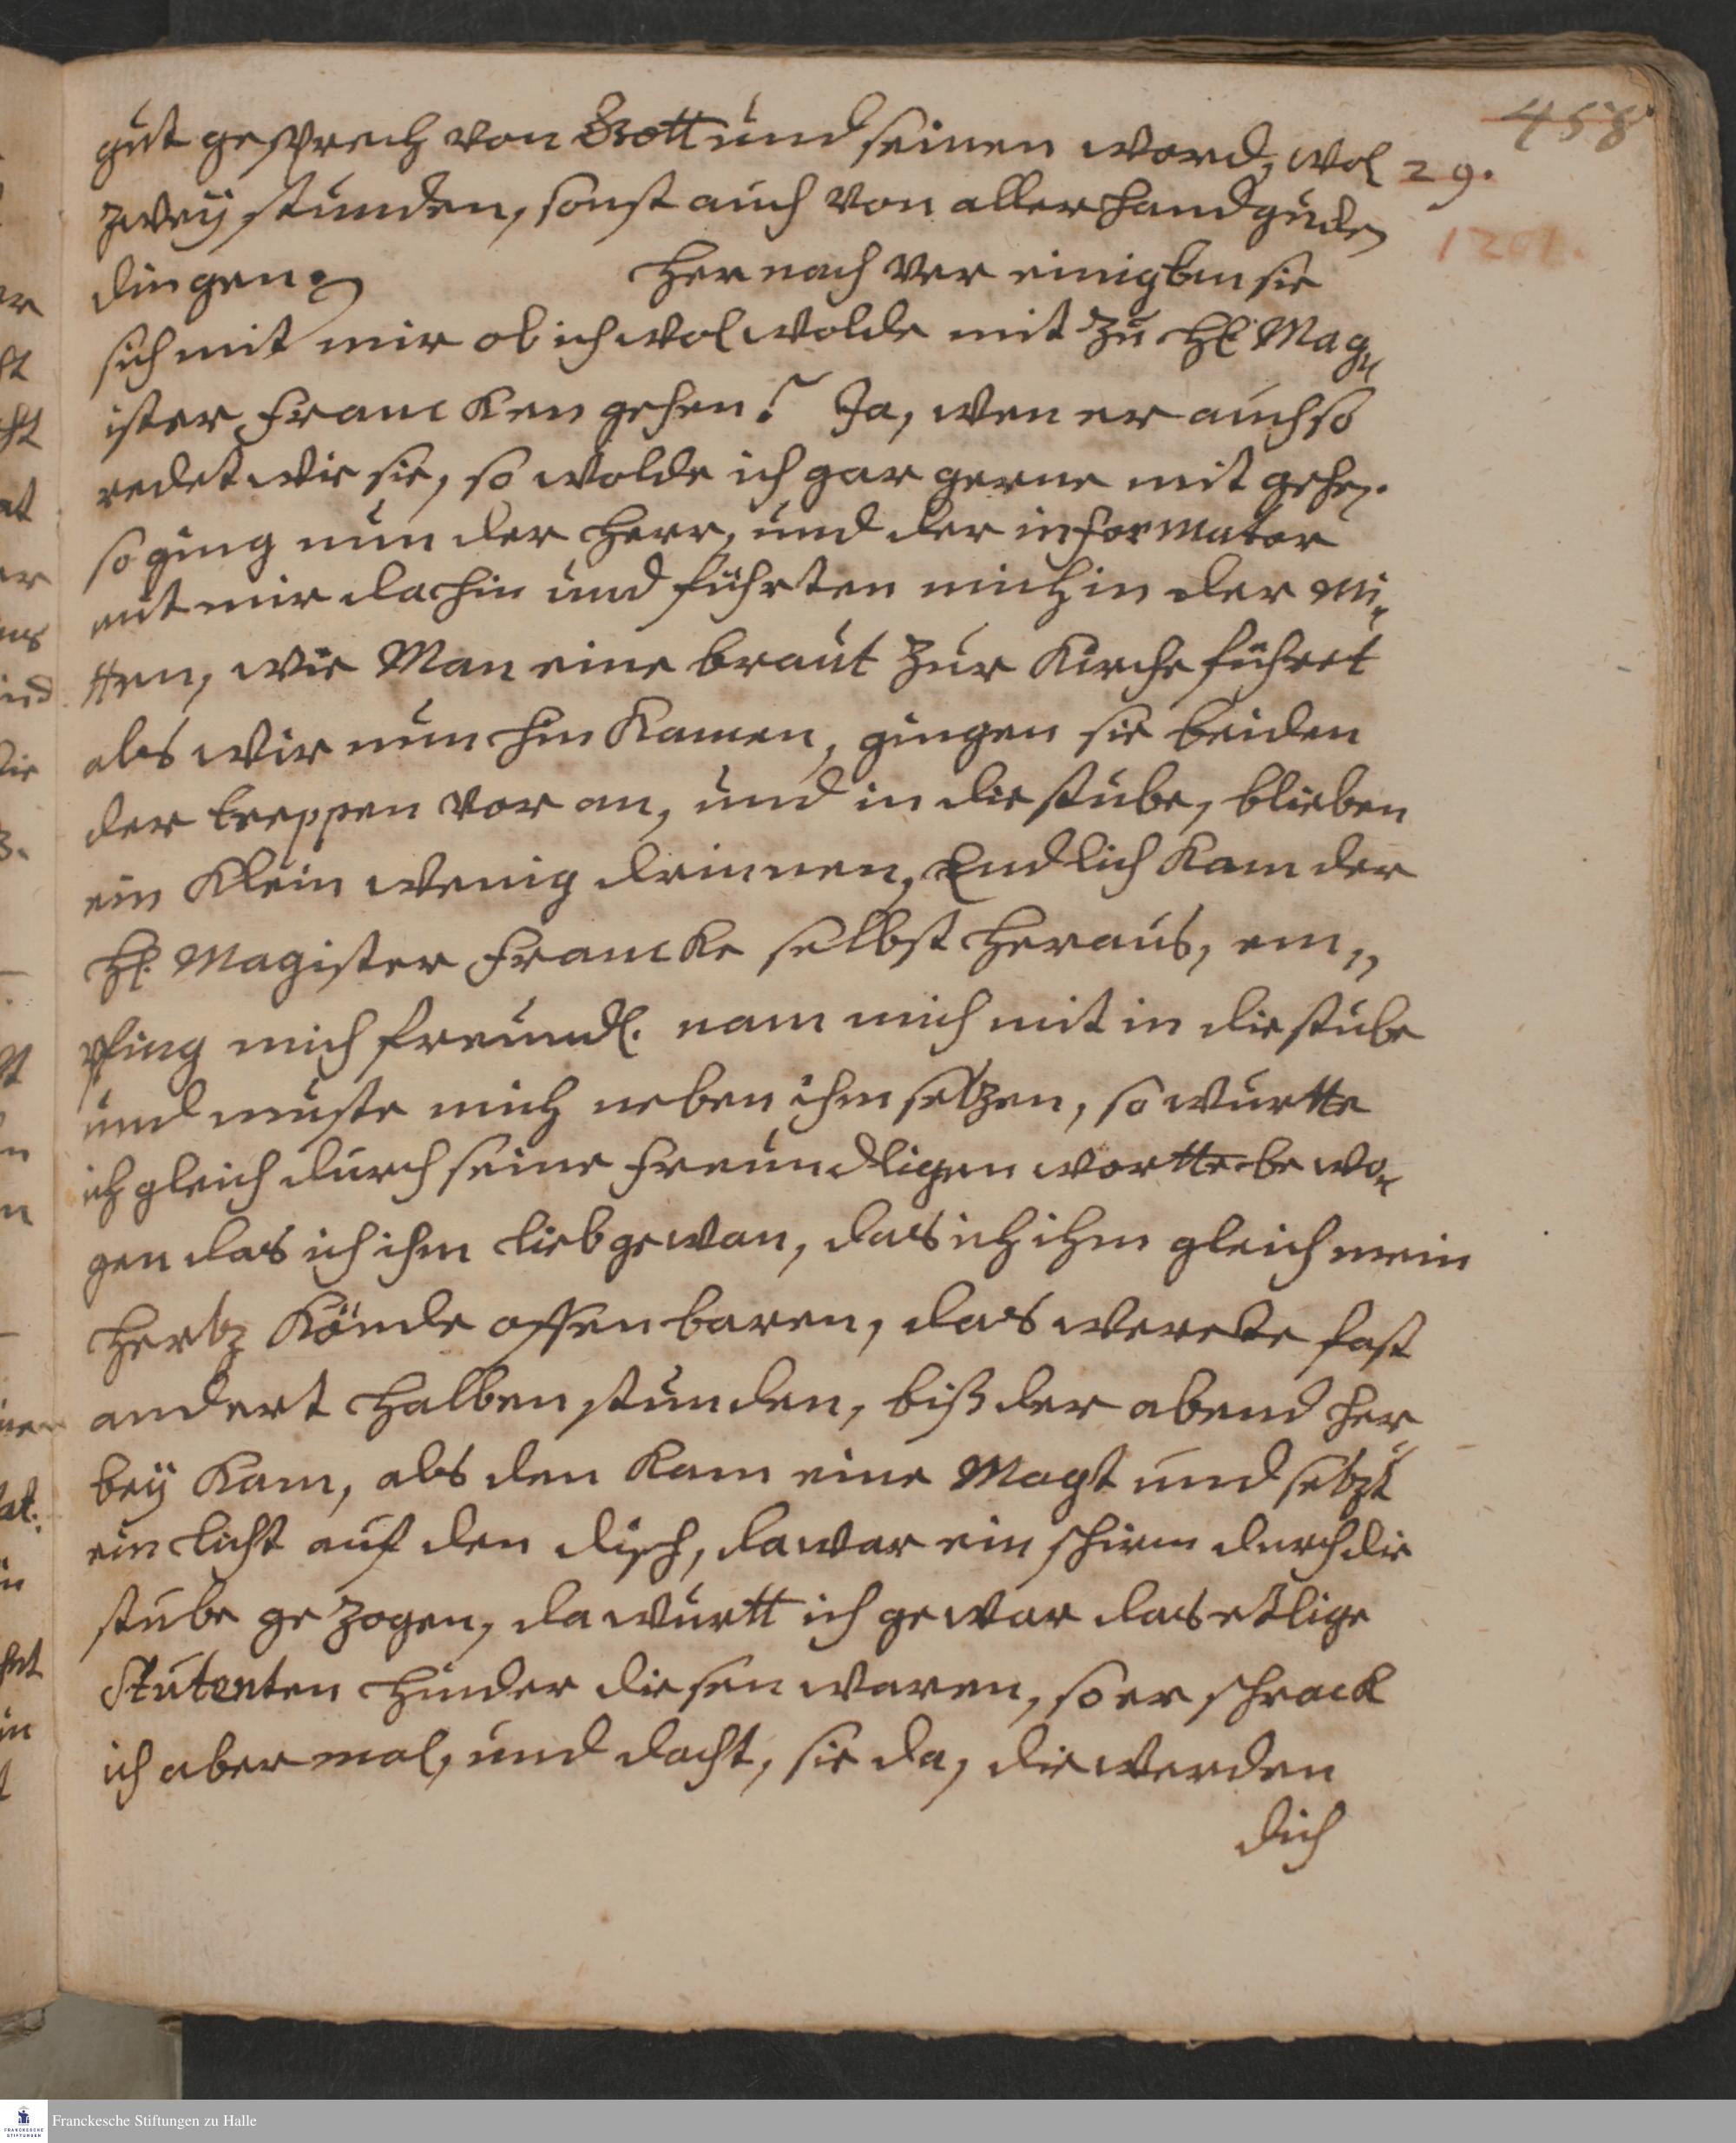 458
29.
1201.
gut gesprech von Gott und seinen word, wol
zweÿ stunden, sonst auch von aller hand guden
dingen. Hernach ver einigten sie
sich mit mir ob ich wol wolde mit zu H. Mag„
ister Francken gehen? Ja, wen er auch so
redet wie sie, so wolde ich gar gerne mit gehen.
so ging nun der Herr, und der informator
mit mir dahin und führten mich in der Mi„
tten, wie Man eine braut zur Kirche führet
als wir nun hin Kamen, gingen sie beiden
der treppen vor an, und in die stube, blieben
ein Klein wenig drinnen, Endlich Kam der
H. Magister Francke selbst heraus, em„
pfing mich freundl. nam mich mit in die stube
und muste mich neben ihm setzen, so wurtte
ich gleich durch seine freundligen wortte be wo„
gen das ich ihm lieb gewan, das ich ihm gleich mein
Hertz Könde offen baren, das werete fast
andert halben stunden, biß der abend her
beÿ Kam, als den Kam eine Magt und setzt
ein licht auf den disch, da war ein schirm durch die
stube ge zogen, da wurtt ich gewar das etlige
Stutenten hinder diesen waren, so er schrack
ich aber mal, und dacht, sie da, die werden
dich
Franckesche Stiftungen zu Halle